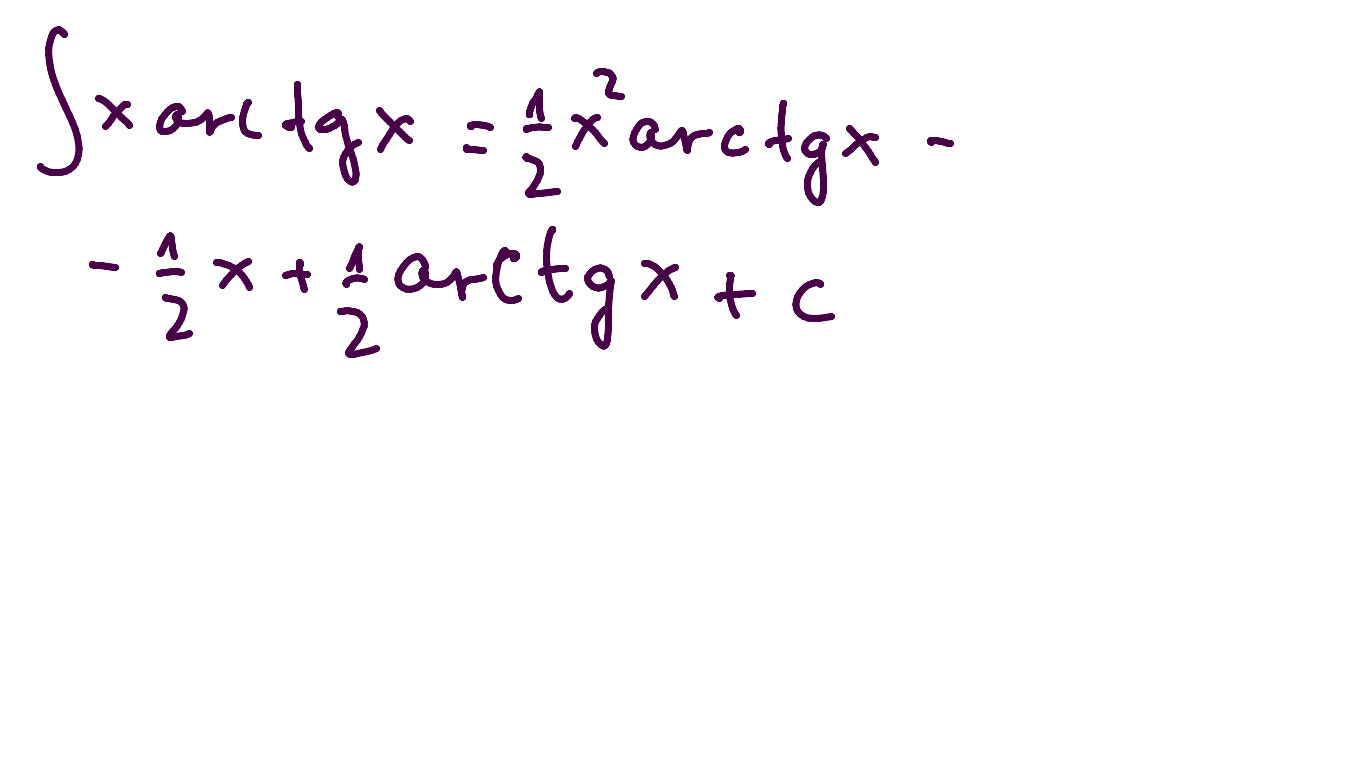 ∫x arctgx = 1/2 x² arctgx -
- 1/2 x + 1/2 arctgx + c